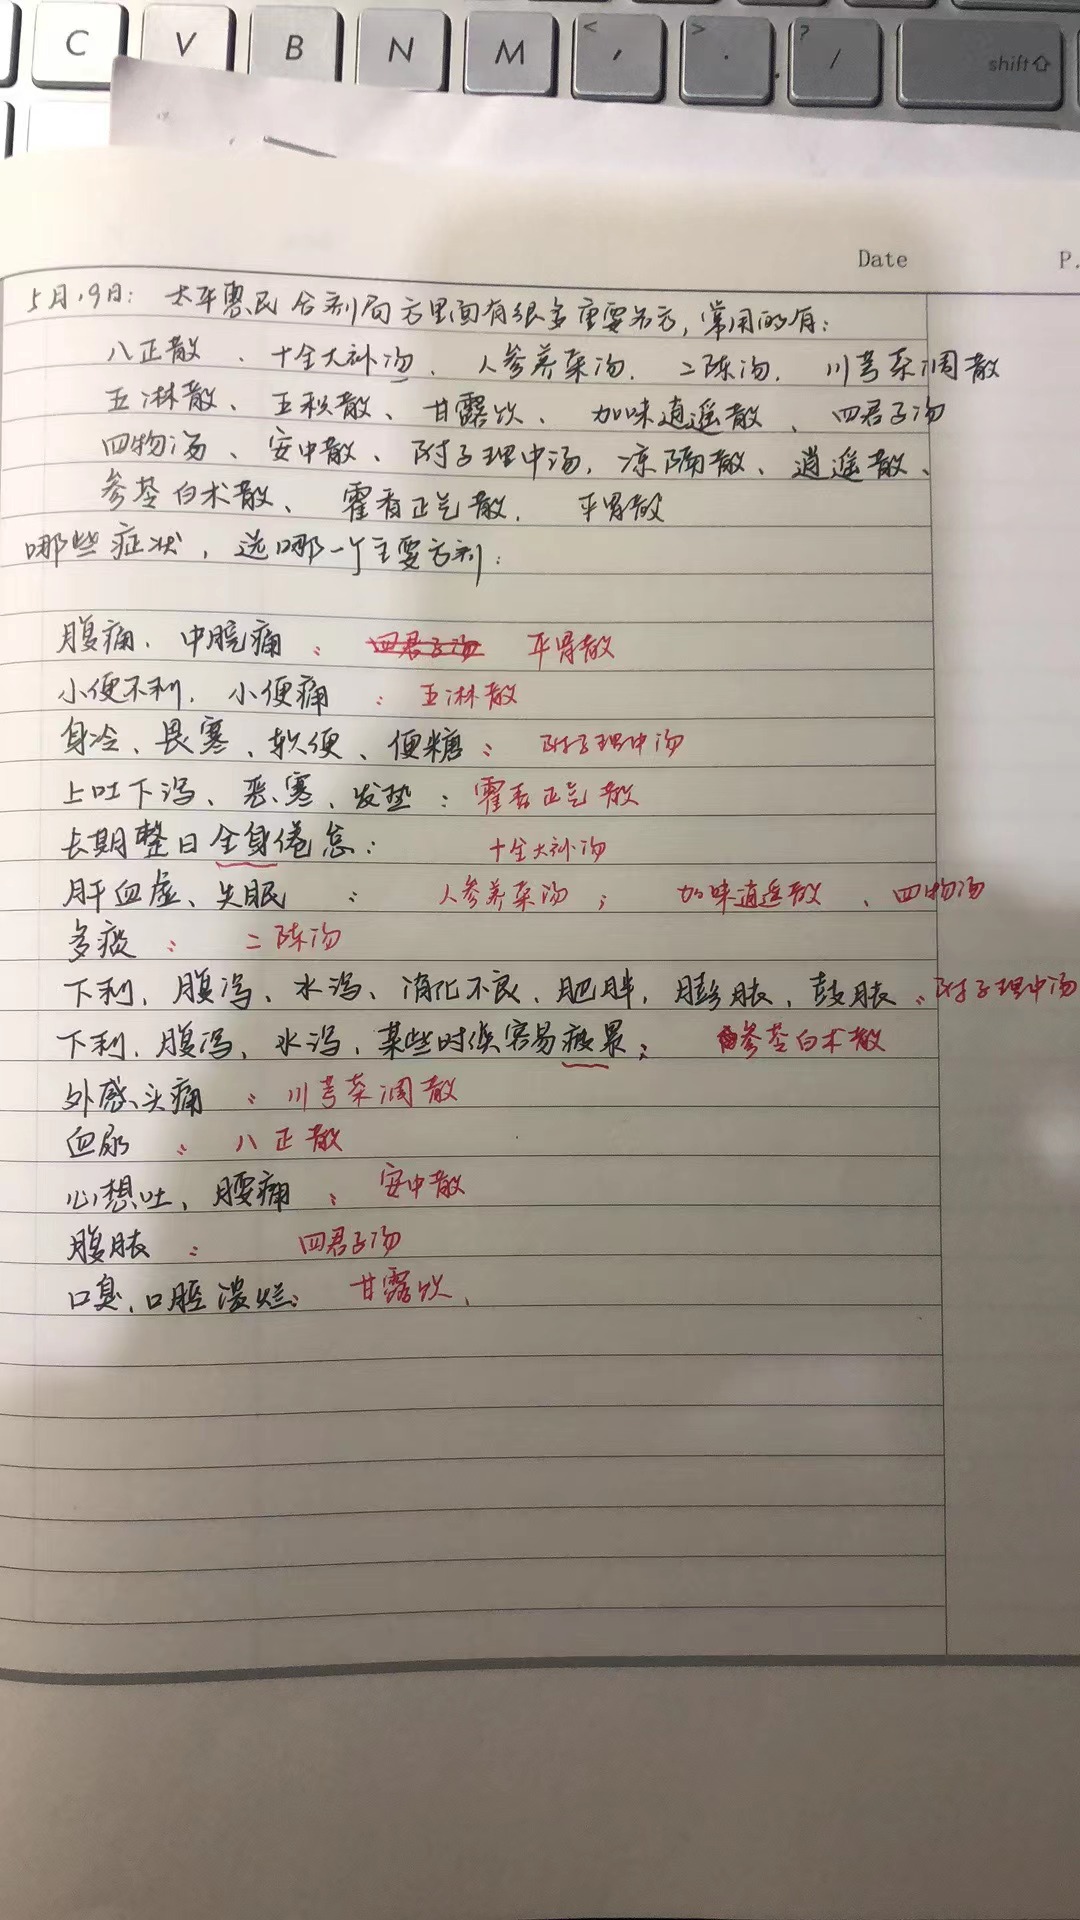 C V B N M < , > . ? / shift
Date P.
5月19日: 太平惠民合剂局方里面有很多重要名方,常用的有:
八正散、十全大补汤、人参养荣汤、二陈汤、川芎茶调散
五淋散、五积散、甘露饮、加味逍遥散、四君子汤
四物汤、安中散、附子理中汤、凉隔散、逍遥散、
参苓白术散、霍香正气散、平胃散
哪些症状,选哪一个主要方剂:
腹痛、中脘痛: 四君子汤 平胃散
小便不利、小便痛: 五淋散
身冷、畏寒、软便、便糖: 附子理中汤
上吐下泻、恶寒、发热: 霍香正气散
长期整日全身倦怠: 十全大补汤
肝血虚、失眠: 人参养荣汤; 加味逍遥散、四物汤
多痰: 二陈汤
下利、腹泻、水泻、消化不良、肥胖、膨胀、鼓胀: 附子理中汤
下利、腹泻、水泻、某些时候容易疲累: 参苓白术散
外感、头痛: 川芎茶调散
血尿: 八正散
心想吐、腰痛: 安中散
腹胀: 四君子汤
口臭、口腔溃烂: 甘露饮、